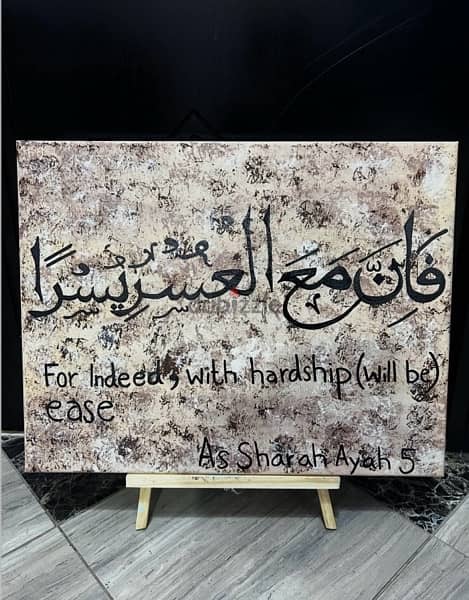 فَإِنَّ مَعَ الْعُسْرِ يُسْرًا
For Indeed, with hardship (will be)
ease
As Sharah Ayah 5